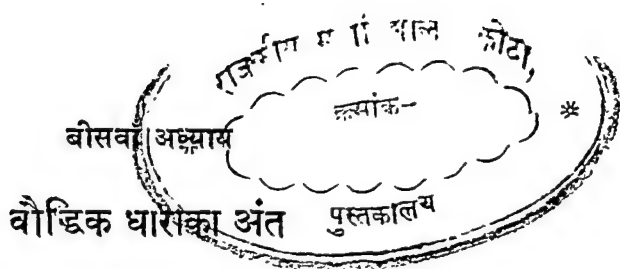 राजकीय कोटा,
क्रमांक-
बीसवाँ अध्याय
*
बौद्धिक धाराका अंत
पुस्तकालय